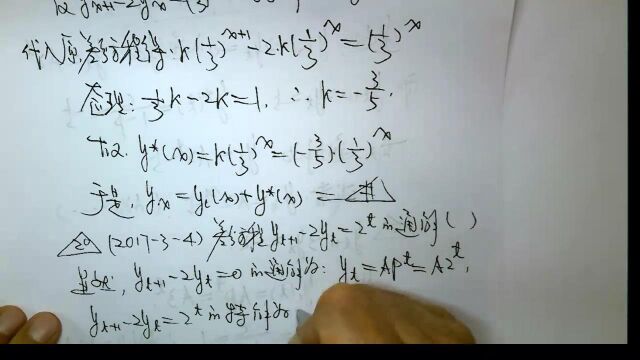 y_{x+1}-2y_x=(
代入原差分方程得: k(1/3)^{x+1}-2·k(1/3)^x=(1/3)^x
整理: 1/3k-2k=1, ∴k=-3/5.
y*(x)=k(1/3)^x=(-3/5)·(1/3)^x
于是, y_x=y_t(x)+y*(x)=
20 (2017-3-4) 差分方程y_{t+1}-2y_t=2^t的通解( )
y_{t+1}-2y_t=0的通解为: y_t=AP^t=A2^t,
y_{t+1}-2y_t=2^t的特解为